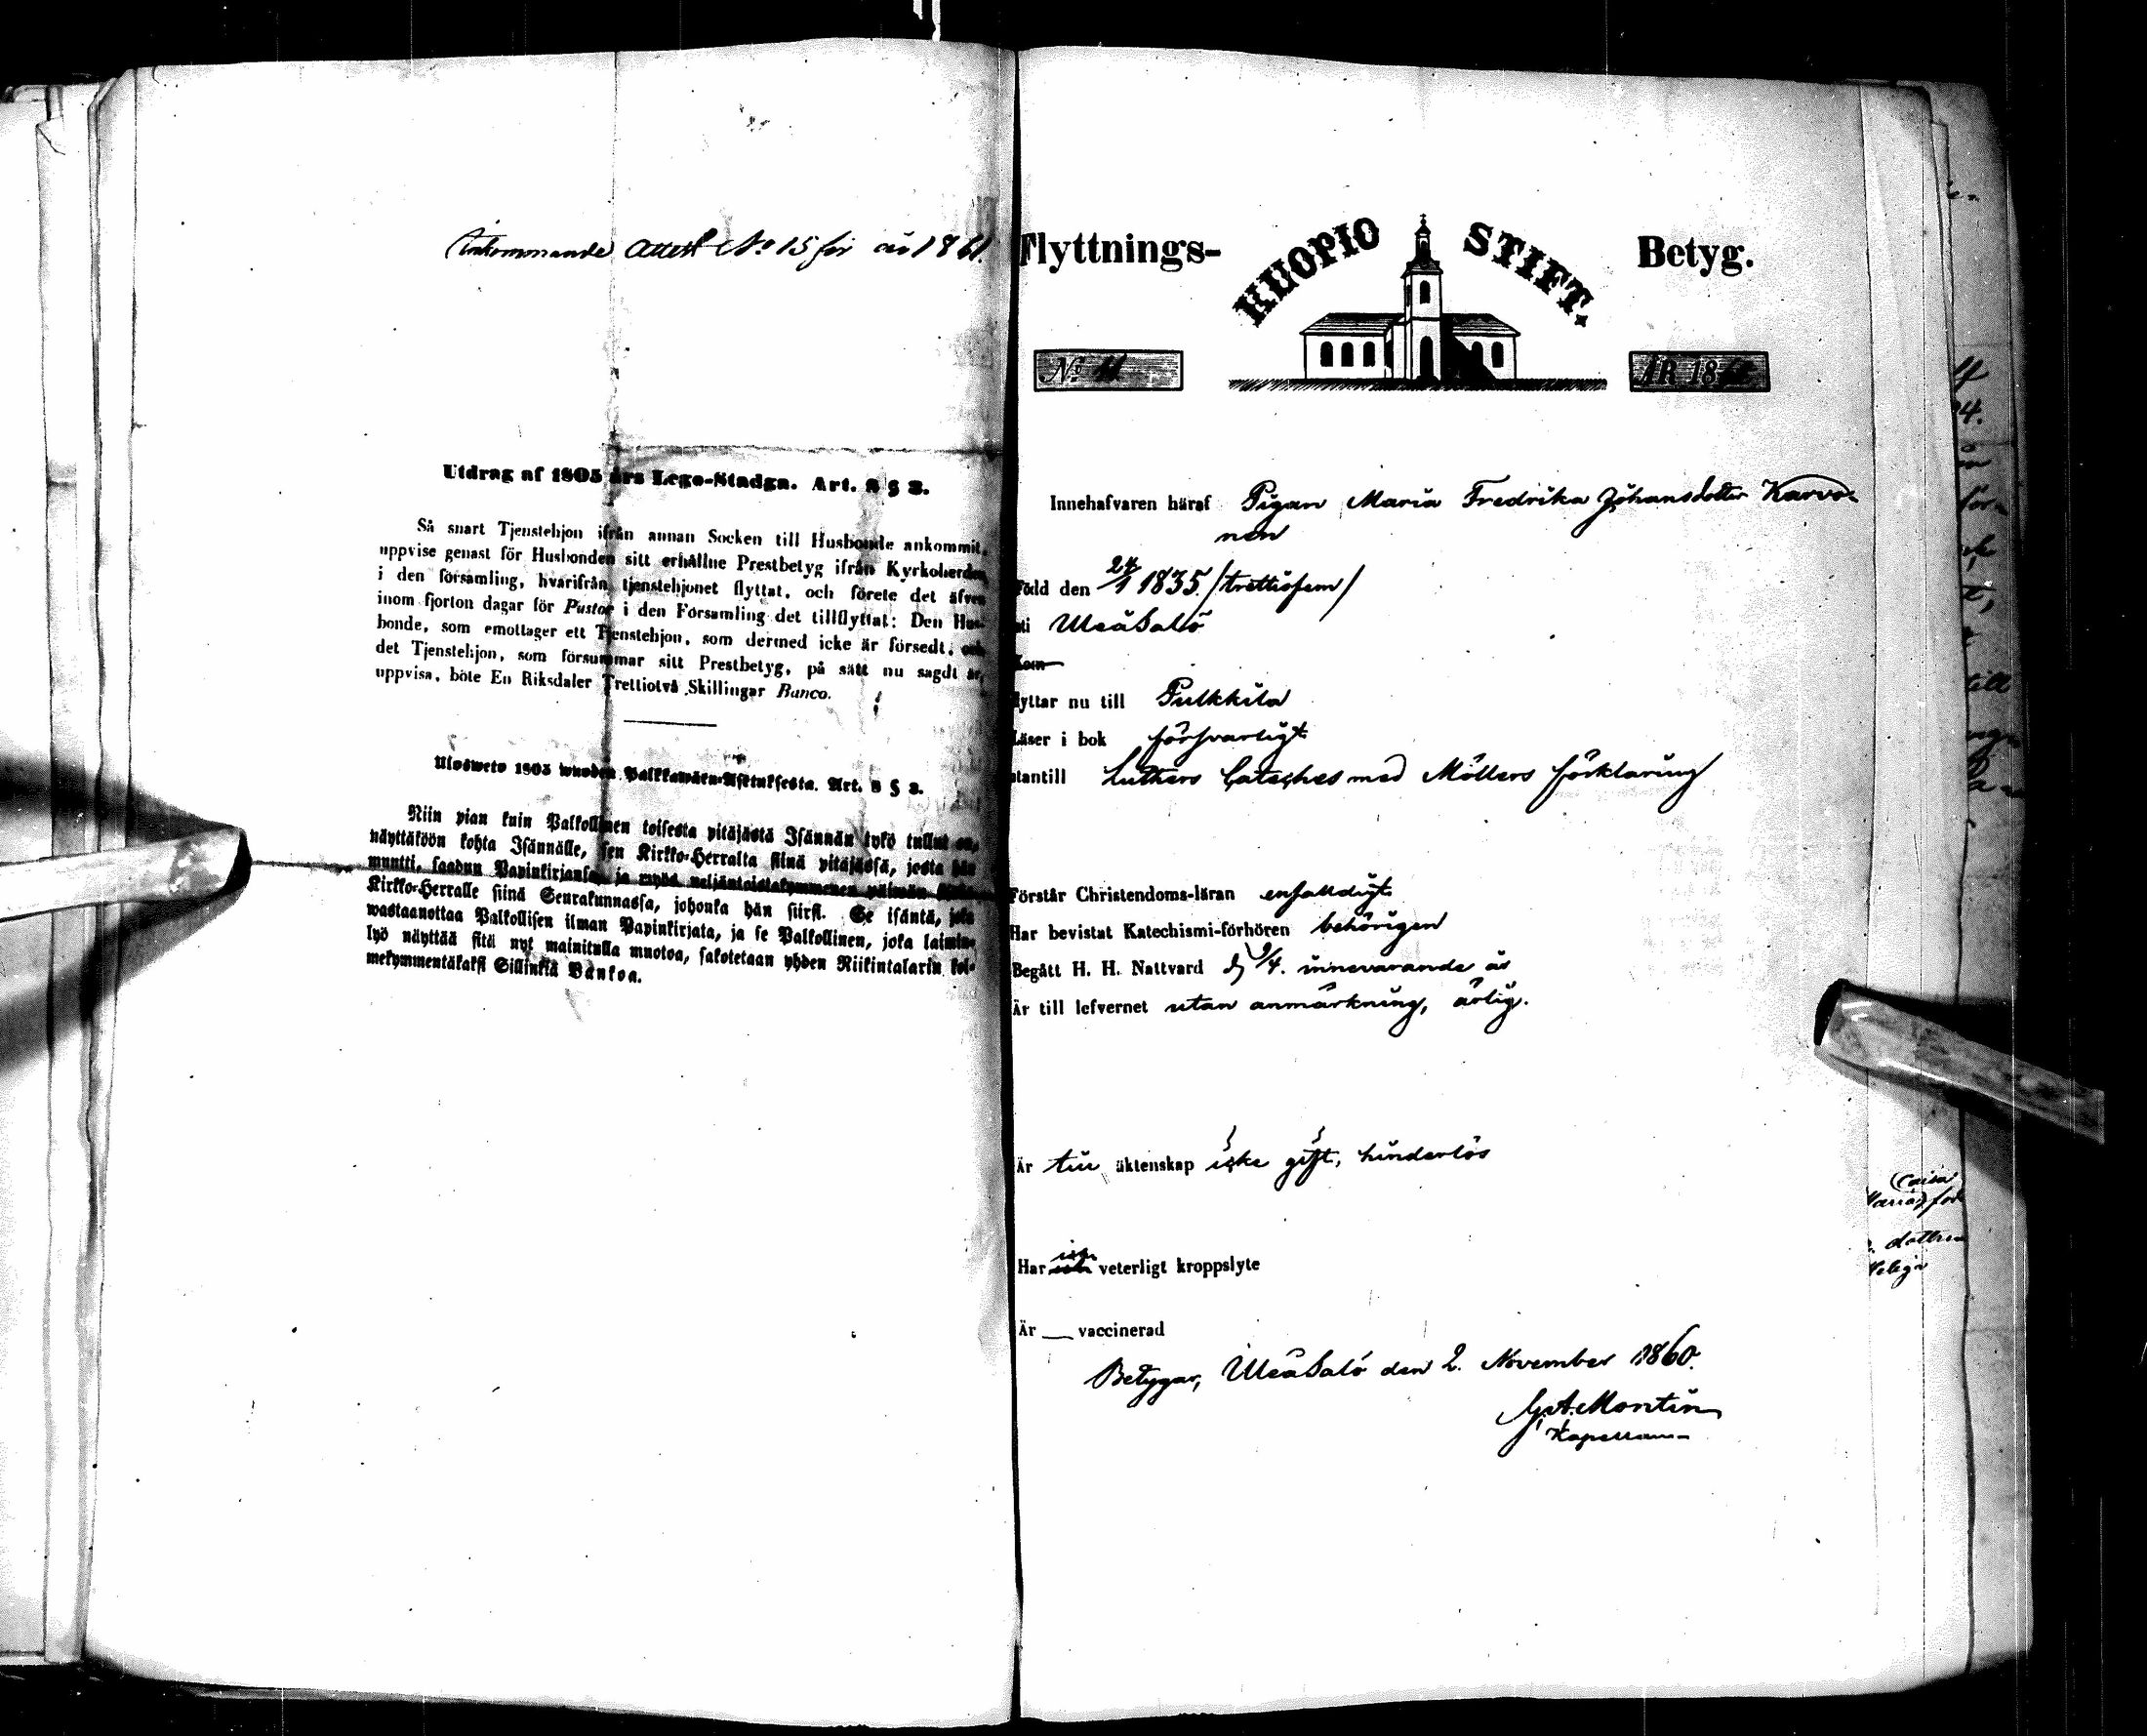 Inkommande Attest No 15 för år 1861.
Utdrag af 1805 års Lego-Stadga. Art. 8 § 3.
Så snart Tjenstehjon ifrån annan Socken till Husbonde ankommit,
uppvise genast för Husbonden sitt erhållne Prestbetyg ifrån Kyrkoherden
i den församling, hvarifrån tjenstehjonet flyttat, och förete det äfven
inom fjorton dagar för Pastor i den Församling det tillflyttat: Den Hus-
bonde, som emottager ett Tjenstehjon, som dermed icke är försedt, och
det Tjenstehjon, som försummar sitt Prestbetyg, på sätt nu sagdt är,
uppvisa, böte En Riksdaler Trettiotvå Skillingar Banco.
Ulosweto 1805 wuoden Palkkawäen-Asetuksesta. Art. 8 § 3.
Niin pian kuin Palkollinen toisesta pitäjästä Isännän tykö tullut on,
näyttäköön kohta Isännälle, sen Kirkko-Herralta siinä pitäjässä, josta hän
muutti, saadun Papinkirjansa, ja myös neljäntoistakymmenen päiwän
Kirkko-Herralle siinä Seurakunnassa, johonka hän siirsi. Se isäntä, joka
wastaanottaa Palkollisen ilman Papinkirjata, ja se Palkollinen, joka laimin-
lyö näyttää sitä nyt mainitulla muotoa, sakotetaan yhden Riikintalarin kol-
mekymmentäkaksi Sillinkiä Bankoa.
Flyttnings- HUOPIO STIFT. Betyg.
No 11 ÅR 18
Innehafvaren häraf Pigan Maria Fredrika Johansdotter Karvo-
nen
Född den 24/1 1835. (trettiofem)
uti UleåSalo
Kom
flyttar nu till Pulkkila
Läser i bok försvarligt
utantill Luthers Cateches med Möllers förklaring
Förstår Christendoms-läran enfaldigt
Har bevistat Katechismi-förhören behörigen
Begått H. H. Nattvard d 9/4. innevarande år
Är till lefvernet utan anmärkning, ärlig.
Är till äktenskap icke gift, hinderlös
Har veterligt kroppslyte
Är — vaccinerad
Betygar, UleåSalo den 2. November 1860.
G. A. Montin
Kapellan